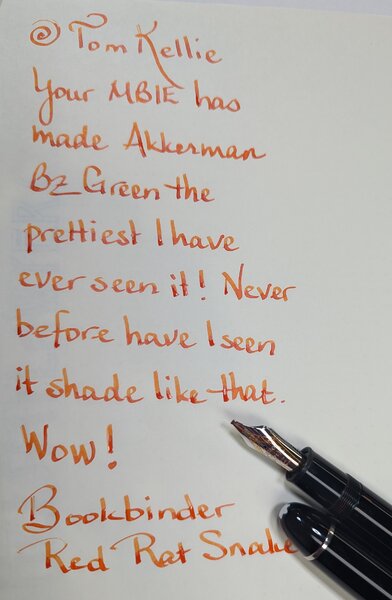 @ Tom Kellie
Your MBIE has
made Akkerman
Bz Green the
prettiest I have
ever seen it! Never
before have I seen
it shade like that.
Wow!
Bookbinder
Red Rat Snake